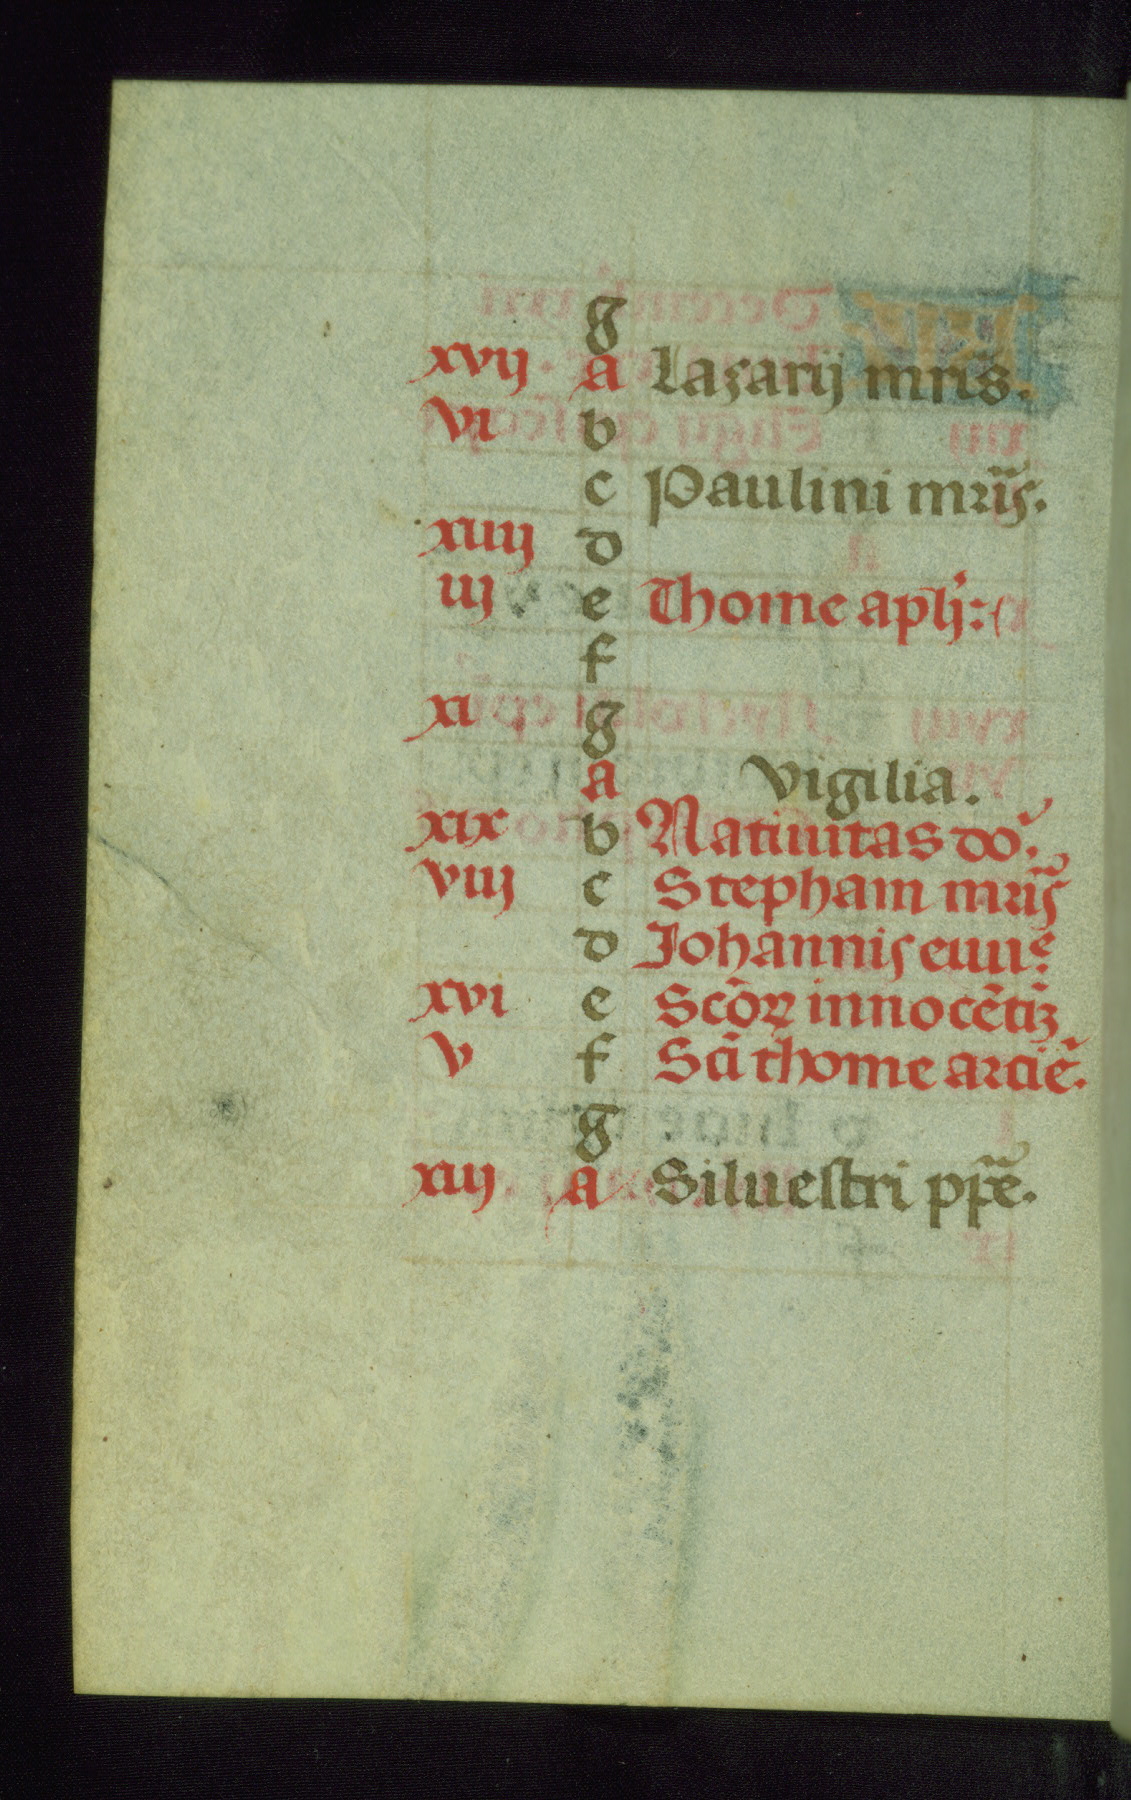 g
xvij a Lazarij mris.
vi b
c Paulini mris.
xiiij d
iij e Thome apli:
f
xi g
a vigilia.
xix b Natiuitas do.
viij c Stephani mris
d Johannis euu͞e
xvi e Sco᷒ꝝ innocētiꝫ
v f Sci thome arciē.
g
xiij a Siluestri ppe.